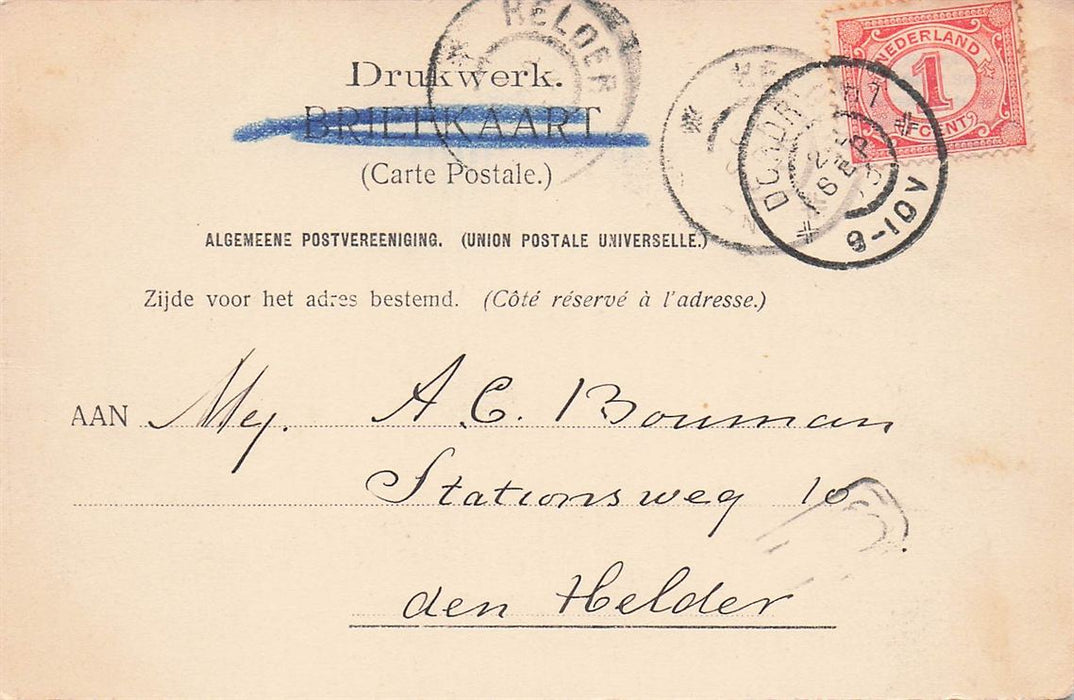 HELDER
NEDERLAND
1
CENT
Drukwerk.
BRIEFKAART.
(Carte Postale.)
8-10V
ALGEMEENE POSTVEREENIGING. (UNION POSTALE UNIVERSELLE.)
Zijde voor het adres bestemd. (Côté réservé à l'adresse.)
AAN Mej. A. C. Bouman
Stationsweg 10
den Helder